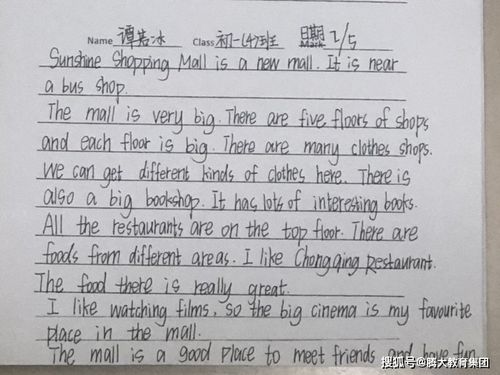 Name 谭岩冰 Class 初一(4)班 日期 Mark 2/5
Sunshine Shopping Mall is a new mall. It is near
a bus shop.
The mall is very big. There are five floors of shops
and each floor is big. There are many clothes shops.
We can get different kinds of clothes here. There is
also a big bookshop. It has lots of interesting books.
All the restaurants are on the top floor. There are
foods from different areas. I like Chongqing Restaurant.
The food there is really great.
I like watching films, so the big cinema is my favourite
place in the mall.
The mall is a good place to meet friends and have fun
搜狐号@腾大教育集团